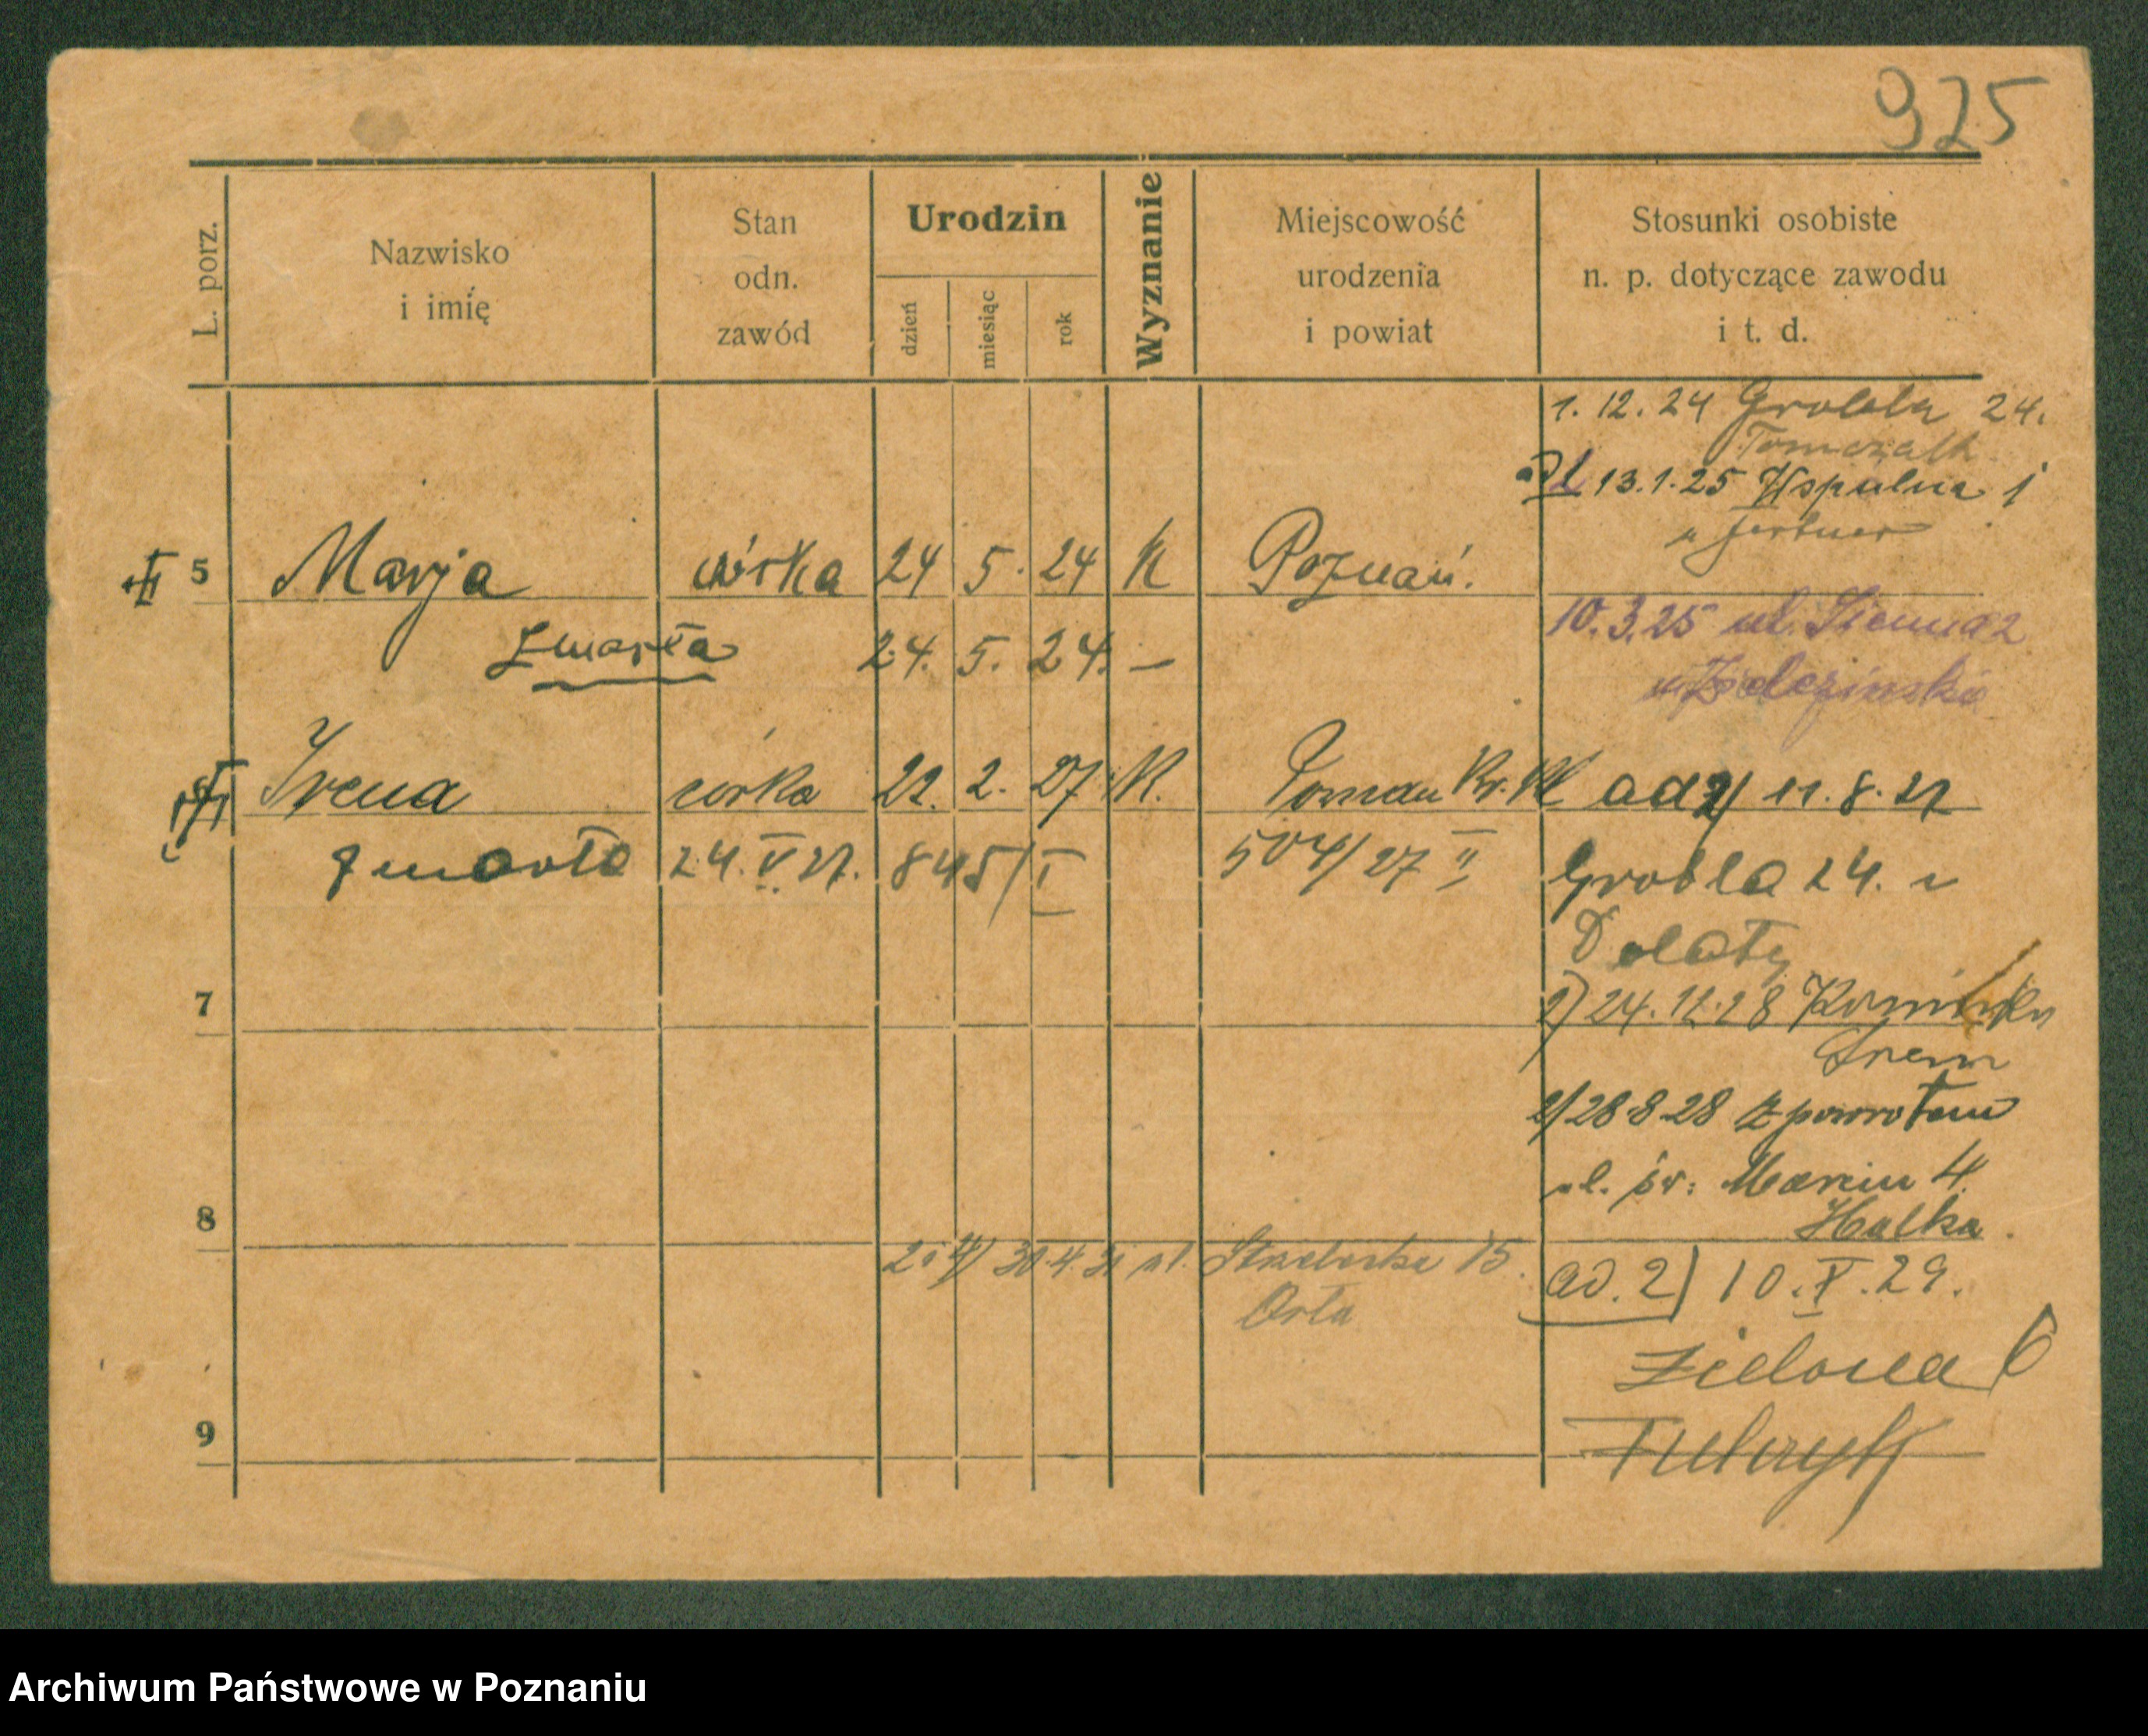 925
L. porz.
Nazwisko
i imię
Stan
odn.
zawód
Urodzin
dzień
miesiąc
rok
Wyznanie
Miejscowość
urodzenia
i powiat
Stosunki osobiste
n. p. dotyczące zawodu
i t. d.
1. 12. 24 Grobla 24.
13.1.25 Wspulna 1
5 Marja córka 24 5. 24 K Poznań.
Zmarła 24. 5. 24. —
10.3.25 ul. Sienna 2
Irena córka 22. 2. 27 K. Poznań
ad 2/ 11. 8. 27
Zmarła 24. V. 27. 845/I 504/27 II
Grobla 24. u
Dolaty
7
2) 24. 12. 28
Śrem
2/ 28-8-28 z powrotem
ul. św: Marcin 4.
8
Hulka.
30.4.31 ul. 15.
Orła
ad. 2) 10. V. 29.
Zielona 6
9
Archiwum Państwowe w Poznaniu